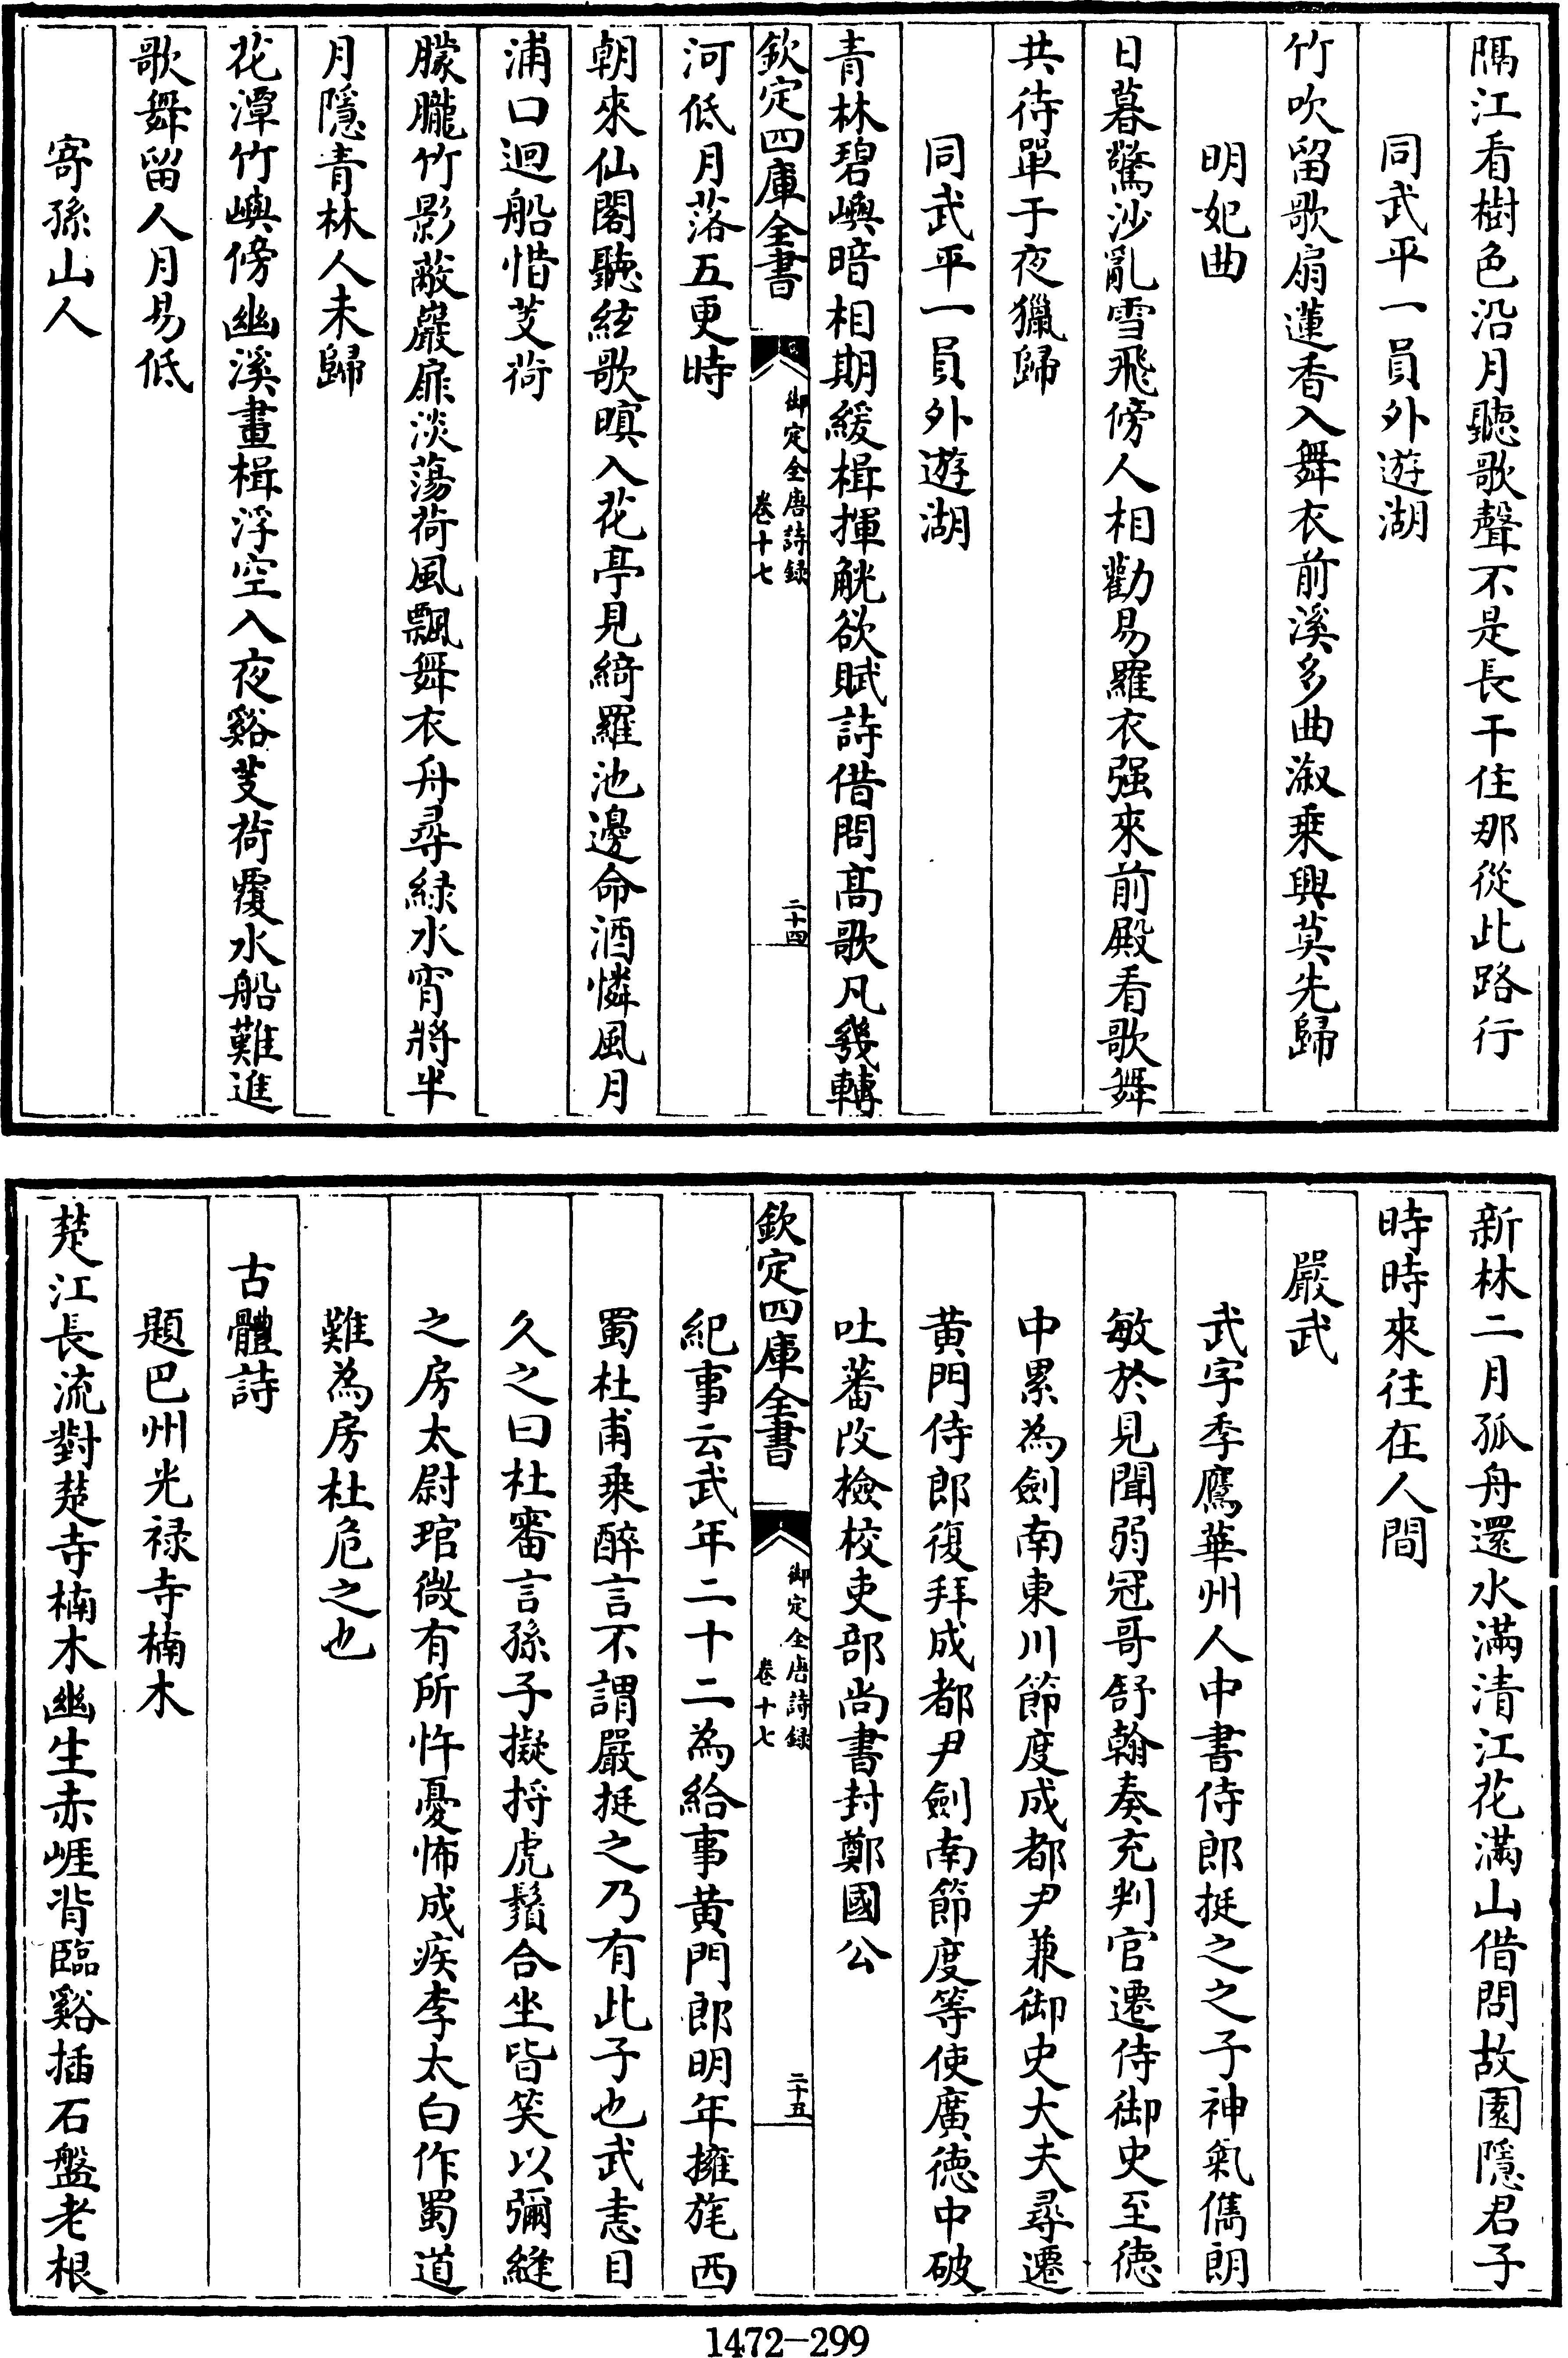 隔江看樹色沿月聽歌聲不是長干住那從此路行
同武平一員外遊湖
竹吹留歌扇蓮香入舞衣前溪多曲溆乗興莫先歸
明妃曲
日暮驚沙亂雪飛傍人相勸易羅衣强來前殿看歌舞
共待單于夜獵歸
同武平一員外遊湖
青林碧嶼暗相期緩楫揮觥欲賦詩借問髙歌凡幾轉
欽定四庫全書
御定全唐詩録
卷十七
二十四
河低月落五更時
朝來仙閣聽絃歌暝入花亭見綺羅池邊命酒憐風月
浦口迴船惜芰荷
朦朧竹影蔽巖扉淡蕩荷風飄舞衣舟尋緑水宵將半
月隱青林人未歸
花潭竹嶼傍幽溪畫楫浮空入夜谿芰荷覆水船難進
歌舞留人月易低
寄孫山人
新林二月孤舟還水滿清江花滿山借問故園隱君子
時時來往在人間
嚴武
武字季鷹華州人中書侍郎挺之之子神氣儁朗
敏於見聞弱冠哥舒翰奏充判官遷侍御史至徳
中累為劍南東川節度成都尹兼御史大夫尋遷
黄門侍郎復拜成都尹劍南節度等使廣徳中破
吐蕃改檢校吏部尚書封鄭國公
欽定四庫全書
御定全唐詩録
卷十七
二十五
紀事云武年二十二為給事黄門郎明年擁旄西
蜀杜甫乗醉言不謂嚴挺之乃有此子也武恚目
久之曰杜審言孫子擬捋虎鬚合坐皆笑以彌縫
之房太尉琯微有所忤憂怖成疾李太白作蜀道
難為房杜危之也
古體詩
題巴州光禄寺楠木
楚江長流對楚寺楠木幽生赤崕背臨谿插石盤老根
1472-299